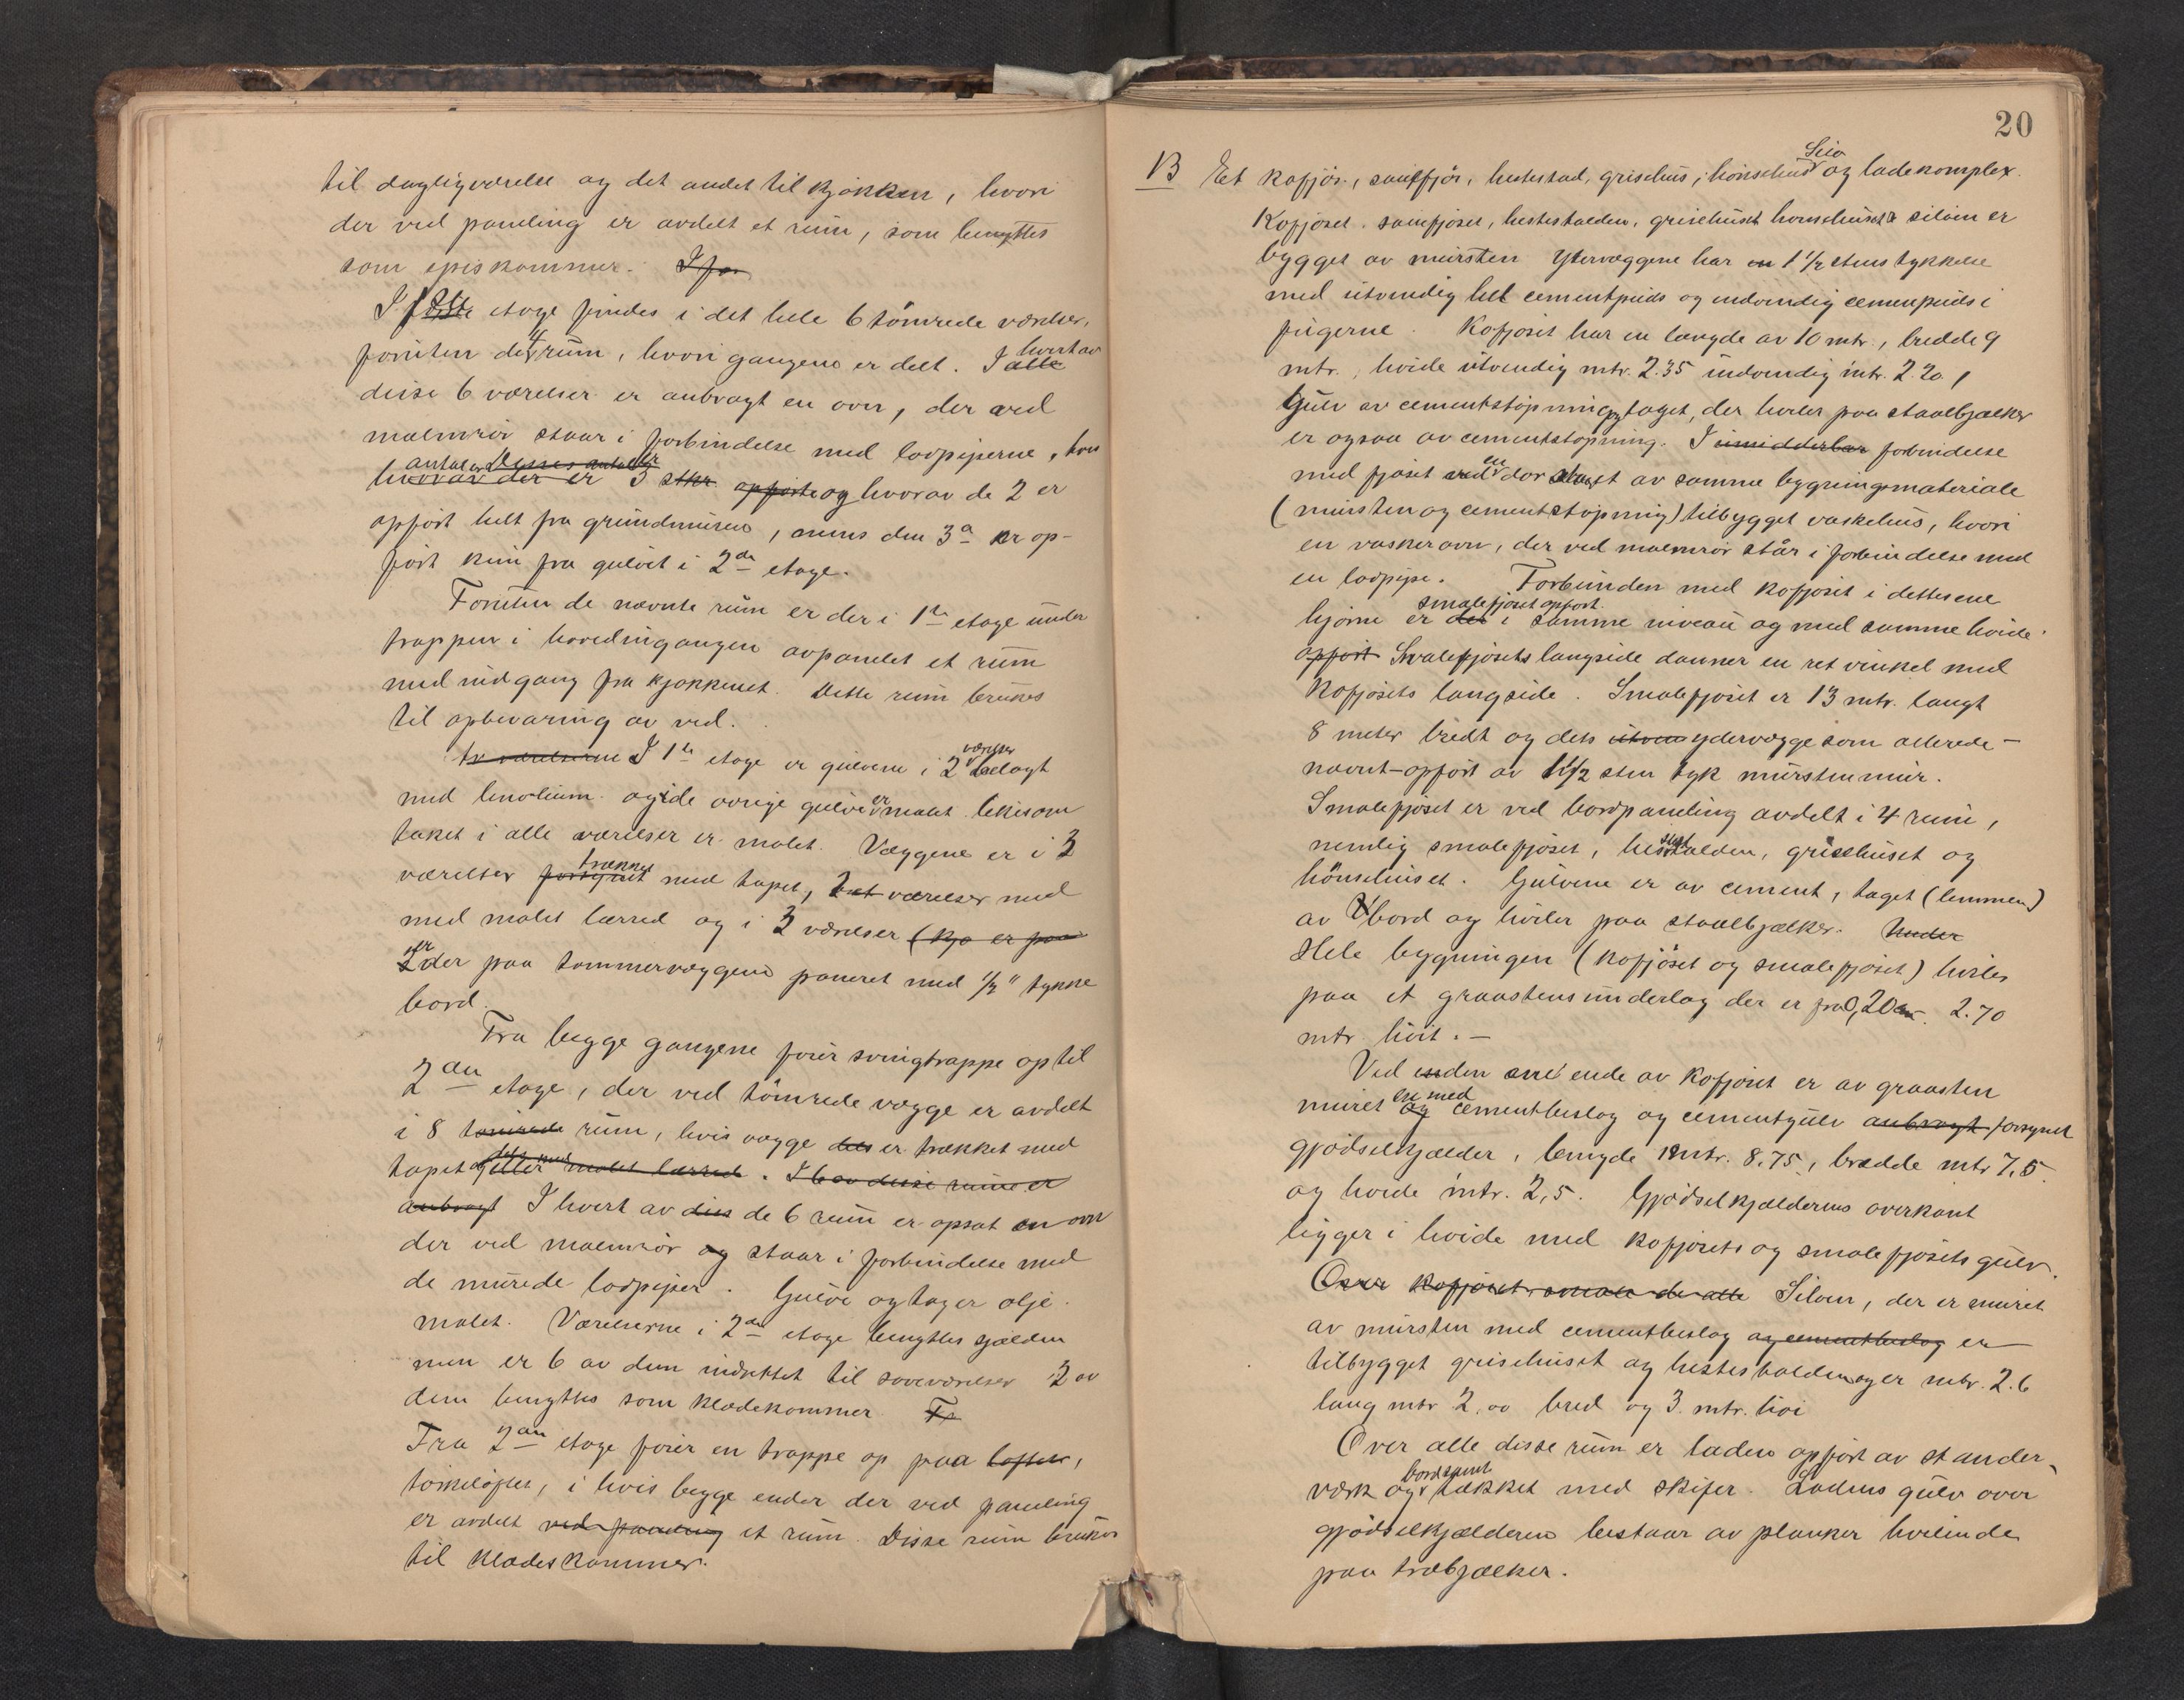 til dagligværelse og det andet til kjøkken, hvori
der ved paneling er avdelt et rum, som benyttes
som spiskammer. I for
I første etage findes i det hele 6 tømrede værelser,
foruten de 4 rum, hvori gangene er delt. I alle hvert av
disse 6 værelser er anbragt en ovn, der ved
malmrør staar i forbindelse med lodpiperne, hvis
antal er Disses antal er
hvorav der er 3 stkr. opførte og hvorav de 2 er
opført helt fra grundmuren, mens den 3a er op-
ført kun fra gulvet i 2den etage.
Foruten de nævnte rum er der i 1ste etage under
trappen i hovedingangen avpanelet et rum
med indgang fra kjøkkenet. Dette rum brukes
til opbevaring av ved.
Av værelserne I 1ste etage er gulvene i 2 værelser belagt
med linolium og i de øvrige gulve er malet likesom
taket i alle værelser er malet. Væggene er i 3
værelser forsynet trækket med tapet, 2 et værelser med
med malet lærred og i 3 værelser (kjø er paa
er der paa tømmervæggene paneret med 1/2" tykke
bord.
Fra begge gangene fører svingtrappe op til
2den etage, der ved tømrede vægge er avdelt
i 8 tømrede rum, hvis vægge der er trækket med
tapet og dels med eller malet lærred. I 6 av disse rum er
anbragt I hvert av diss de 6 rum er opsat en ovn
der ved malmrør og staar i forbindelse med
de murede lodpiper. Gulve og tag er olje-
malet. Værelserne i 2den etage benyttes sjælden
men er 6 av dem indrettet til soveværelser 2 av
dem benyttes som klædekammer. Fr
Fra 2den etage fører en trappe op paa loftet,
tørkeloftet, i hvis begge ender der ved paneling
er avdelt ved paneling et rum. Disse rum brukes
til klædeskammer.
20
B Et kofjøs, saufjøs, hestestad, grisehus, hønsehus Silo og ladekomplex.
Kofjøset, saufjøset, hestestalden, grisehuset hønsehuset & siloen er
bygget av mursten Ytervæggene har en 1 1/2 stens tykkelse
med utvendig hel cementpuds og indvendig cementpuds i
fugerne. Kofjøset har en længde av 10 mtr., bredde 9
mtr., høide utvendig mtr. 2.35 indvendig mtr. 2.20,
Gulv av cementstøpning og taget, der hviler paa staalbjælker
er ogsaa av cementstøpning. I umidderbar forbindelse
med fjøset ved en dør er det av samme bygningsmateriale
(mursten og cementstøpning) tilbygget vaskehus, hvori
en vaskeovn, der ved malmrør står i forbindelse med
en lodpipe. Forbunden med kofjøset i dettes ene
hjørne er det smalefjøset opført. i samme niveau og med samme høide
opført Smalefjøsets langside danner en ret vinkel med
kofjøsets langside. Smalefjøset er 13 mtr. langt
8 meter bredt og dets utven ydervægge som allerede –
nævnt – opført av 1 1/2 sten tyk murstenmur.
Smalefjøset er ved bordpaneling avdelt i 4 rum,
nemlig smalefjøset, hestestalden, grisehuset og
hønsehuset. Gulvene er av cement, taget (lemmen)
av bord og hviler paa staalbjælker. Under
Hele bygningen (kofjøset og smalefjøset) hviler
paa et graastensunderlag der er fra 0,20 – 2.70
mtr høit. –
Ved enden ene ende av kofjøset er av graasten
muret og en med cementbeslag og cementgulv anbragt forsynet
gjødselkjælder, længde mtr. 8.75, bredde mtr 7,5
og høide mtr. 2,5. Gjødselkjælderens overkant
ligger i høide med kofjøsets og smalefjøsets gulv.
Over kofjøset, smale de alle Siloen, der er muret
av mursten med cementbeslag og cementbeslag er
tilbygget grisehuset og hestestalden og er mtr. 2.6
lang mtr 2.00 bred og 3. mtr. høi
Over alle disse rum er laden opført av stander-
værk og bord samt tækket med skifer. Ladens gulv over
gjødselkjælderen bestaar av planker hvilende
paa træbjælker.